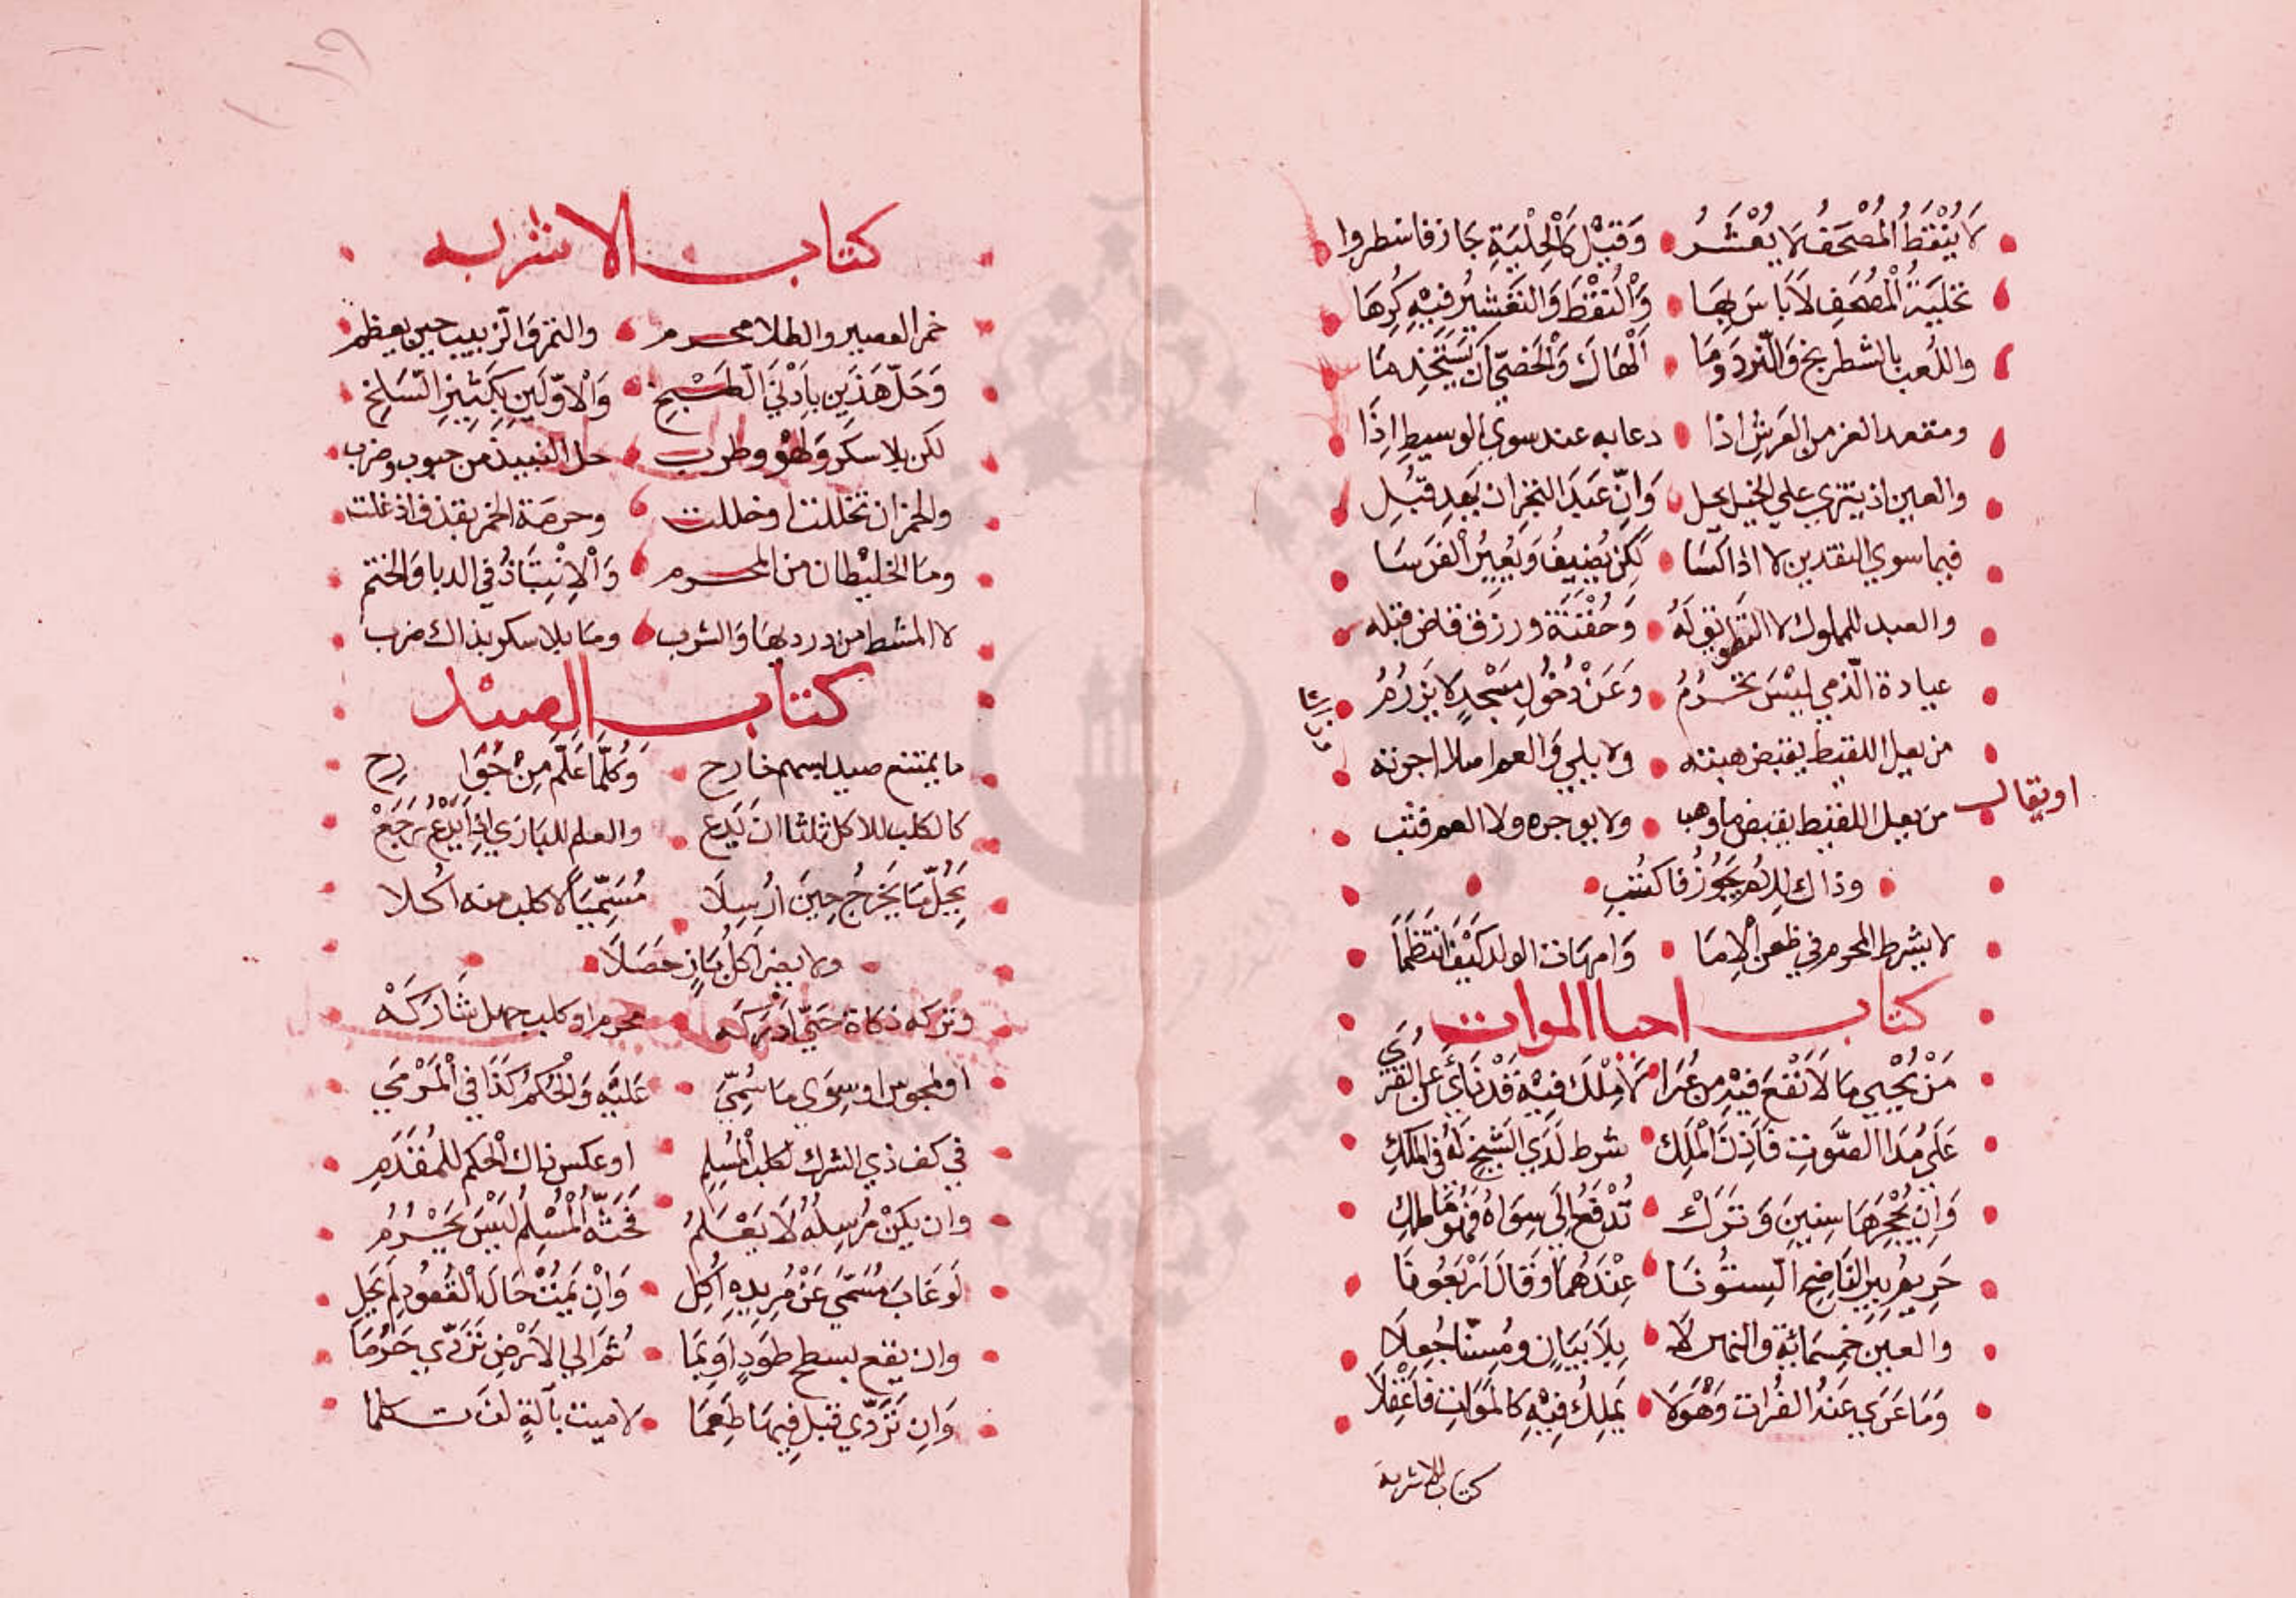 لَا يُنْقَطُ الْمُصْحَفُ لَا يُعْشَرُ وَقِيْلَ كَالْحِلْيَةِ جاز فاسطروا
تحْلِيَةُ الْمُصْحَفِ لَا بَاسَ بِهَا وَالنُقْطَ وَالتَعْشِيْرُ فِيْهِ كُرِهَا
واللُعب بالشطرنج وَالنَّرد وَمَا الْهَاكَ وَالْخَصِيّ ان يَسْتَخْدِمَا
ومقعد العز من العَرشِ اذا دعا به عند سوي الوسيطِ اِذَا
والعين اذ ينزي علي الخيل يحل وَانّ عَبَدَ التجر ان يَهدِ قُبِلِ
فيما سوي النقدين لا اذا كَسَا لَكِنْ يُضِيفُ وَيُعِيرُ الْفَرَسَا
والعبد للمملوك لا التطويق لَهُ وَحُقْنَة ورزق قاض قبله
عيادة الذمي لَيْسَ تحْرُمُ وَعَنْ دُخُولِ مَسْجِدٍ لا يزرَمُ
من يعل اللقيط يقبض هبته ولا يلي والعم املا اجرته
او يقال من يعل اللقيط يقبض ما وهبا ولا يوجره ولا العم
وذاك لِلامّ يَجُوزُ فاكتُبِ
لا يشرط المحرم في ظعن الاِمَا وَامهات الولد كَيْفَ انْتَظَمَا
كتاب احيا الموات
مَنْ يُحْيِي مَا لَا نَفْعَ فِيْهِ مِنْ عُرَا لَا مِلْكَ فِيْهِ قَدْ نَأَي عَنِ الْقُرَي
عَلَي مَدَا الصَّوتِ فَاَذِنَ الْمَلِك شرط لَدَي الشَيْخِ لَهُ في المَلَكِ
وَاِن يُحْجِرْهَا سِنِينَ وَتَرَكْ تُدْفَعُ اِلَي سِوَاهُ فَهُوَ مَا مَلَك
حَرِيمُ بِيرِ النَاضِحِ السِتُّونَا عِنْدَهُمَا وَقَالَ اَرْبَعُونَا
والعين خَمِسَمَائةٍ والنهر لَا بِلَا بَيَانٍ وَمُسَنّا جُعِلَا
وَمَا عَرَي عَنهُ الفُرات وَهْوَ لَا يَمْلِك فِيْهِ كَالْمَوَاتِ فَاعْقِلَا
كتاب الاشربة
كتاب الاشربه
خمر العصير والطلا محرم والتمر وَالزبيب حين يعظم
وَحَلّ هَذَينِ بِاَدْنَي الطَبْخِ وَالاوّلَينِ بِكَثِيْرِ السَلخِ
لكن بلا سكر وَلَهْو وطرب حل النبيذ من حبوب وضرب
والخمر ان تخللت او خللت وعرصة الخمر بقذف اذ غلت
وما الخليْطان من المحرم وَالْاِنْتِبَاذُ في الدبا وَالحنتم
لا المشط من درديها وَالشرب وما بلا سكر بذاك ضرب
كتاب الصيد
ما يمتنع صيدا بسهم جارح وَكُلّمَا عَلَّم مِنْ جَوَا رِح
كالكلب للاكل ثلثا ان يَدَع والعلم للبازي اِذا يَدْعُ رَجَعْ
يَحِلّ مَا يَخْرُجُ حِينَ اُرْسِلَا مُسَمِّيَاً لا كلب منه اكلا
ولا يضر اكل بَازٍ حَصَلَا
وتركه ذكاة حَيّ اَدْرَكَه محرم او كلب جهل شَارَكَهْ
او لمجوس او سِوَي ما سُمِّيَ عَلَيْهِ وَالحُكْمُ كَذَا في المَرْمَي
في كف ذي الشرك لكلب المُسْلِمِ او عكس ذاك الحكم للمُقَدَمِ
وان يكنْ مُرْسِلُهُ لَا يَعْلَمُ فَحَثّهُ الْمُسْلِمُ لَيْسَ يَحْرُمُ
لَو غَابَ مُسَمَّي عَنْ مُرِيدِهِ اُكِل وَاِنْ يَمُتْ حَالَ الْقُعُودِ لَم يَحِلِ
وان يقع بسطح طودٍ اَو بِمَا ثم الي الاَرْضِ تَرَدّي حَرُمَا
وَاِن تَرَدّي قبل فِيهَا طَعِمَا لا ميت بآلةٍ كلما